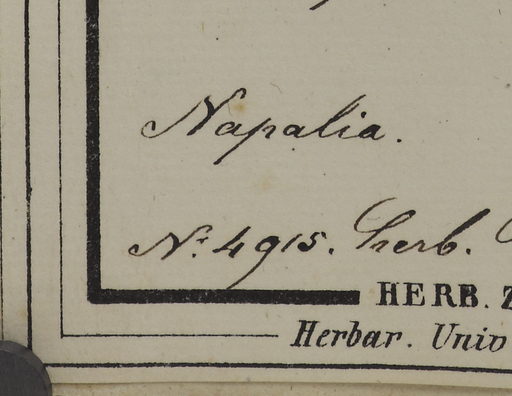 Napalia.
Nr. 4915. herb.
HERB. Z
Herbar. Univ